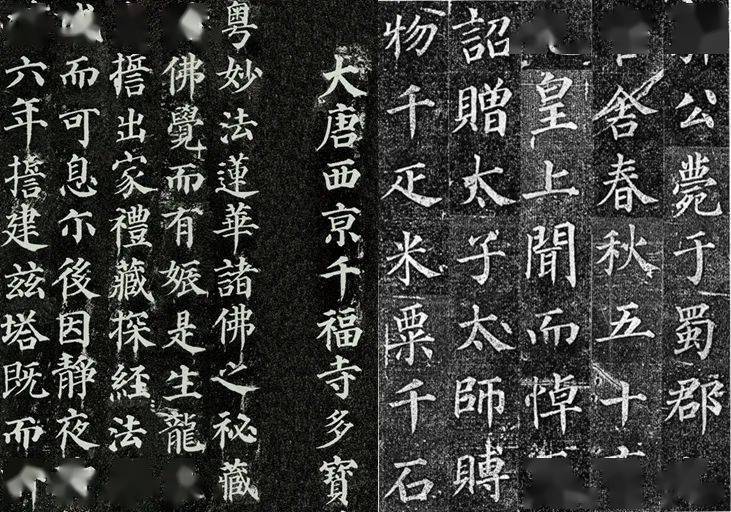 公薨于蜀郡
舍春秋五十
皇上聞而悼
詔贈太子太師賻
物千疋米粟千石
大唐西京千福寺多寶
粵妙法蓮華諸佛之祕藏
佛覺而有娠是生龍
誓出家禮藏探經法
而可息尒後因靜夜
六年誓建茲塔既而